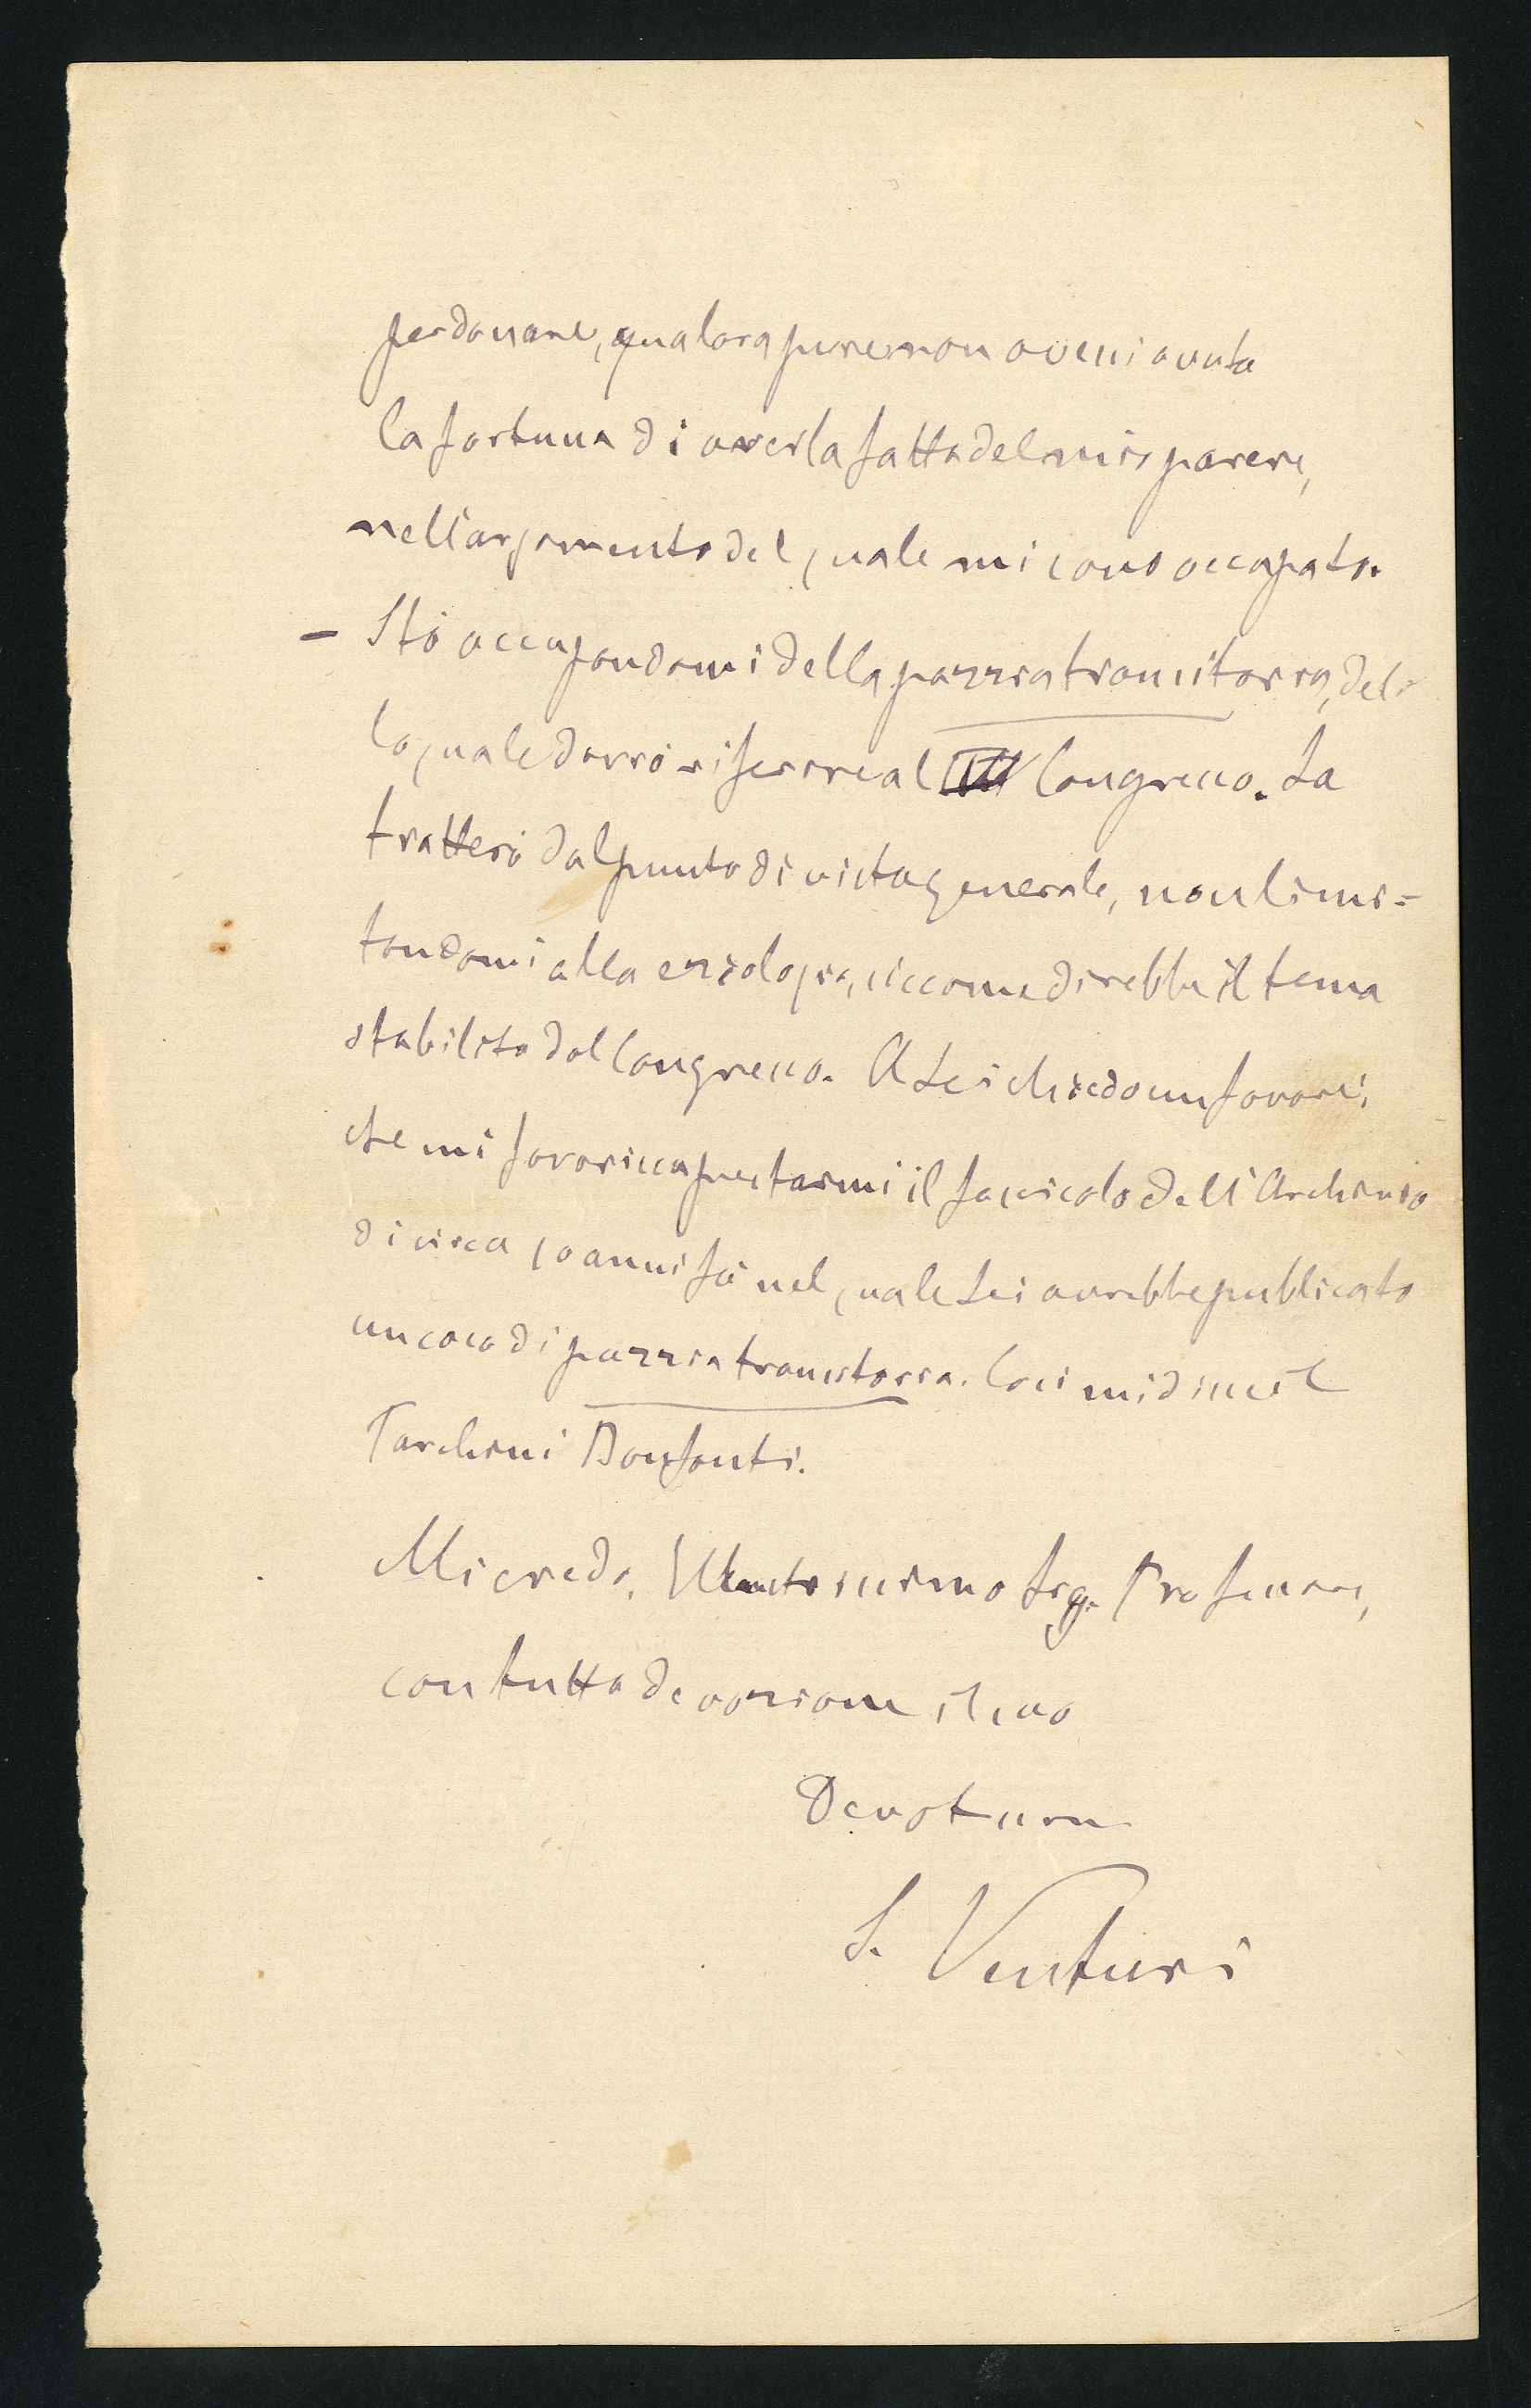 perdonare, qualora pure non avessi avuta
la fortuna di averla fatta del mio parere,
nell'argomento del quale mi sono occupato.
– Stó occupandomi della pazzia transitoria, del-
la quale dovrò riferire al Congresso. La
tratterò dal punto di vista generale, non limi=
tandomi alla eziologia, siccome direbbe il tema
stabilito dal Congresso. A Lei chiedo un favore:
che mi favorisca prestarmi il fascicolo dell'Archivio
di circa 10 anni fà nel quale Lei avrebbe publicato
un caso di pazzia transitoria. Così mi disse il
Tarchini Bonfanti.
Mi creda, Illustrissimo Sig. Professore,
con tutta devozione il suo
Devotissmo
S. Venturi